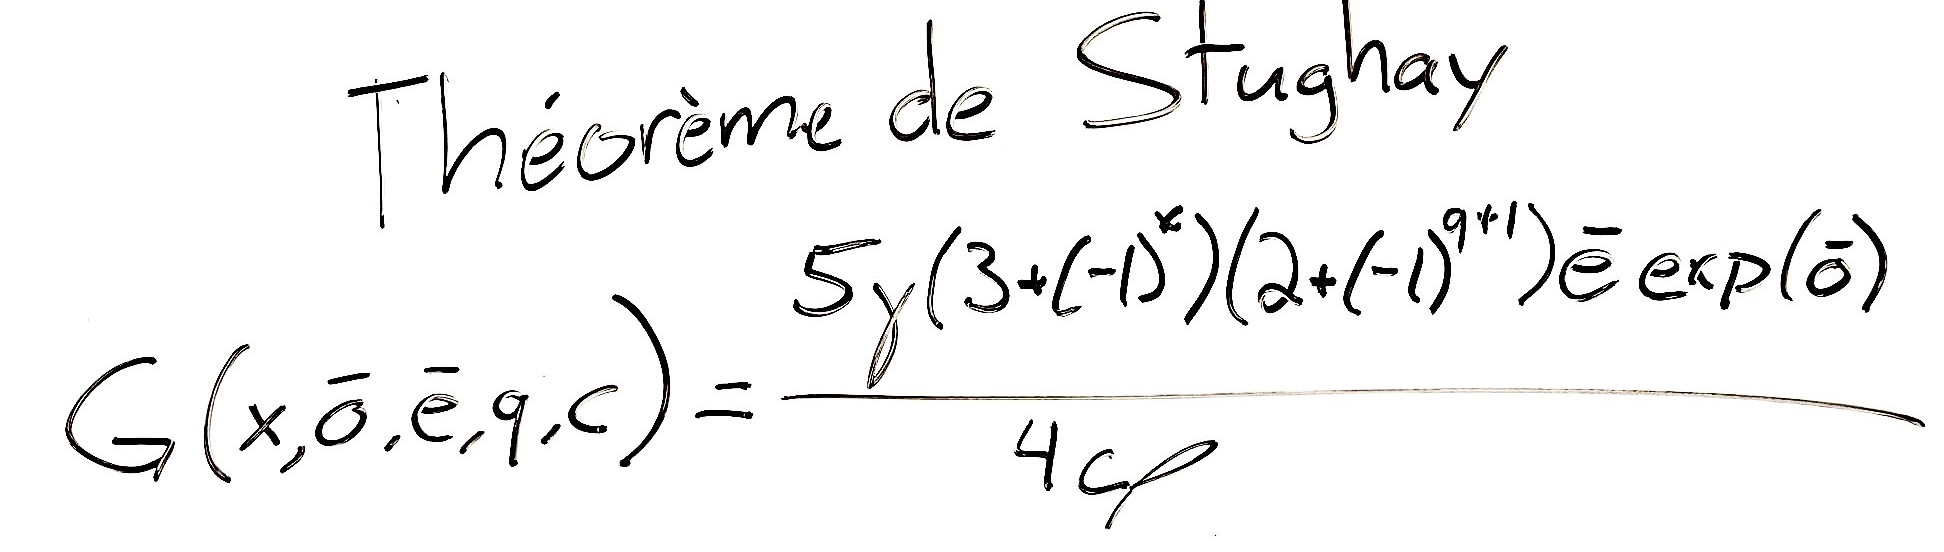 Théorème de Stughay
G(x, ō, ē, q, c) = 5γ(3+(-1)^x)(2+(-1)^{q+1}) ē exp(ō) / 4cρ